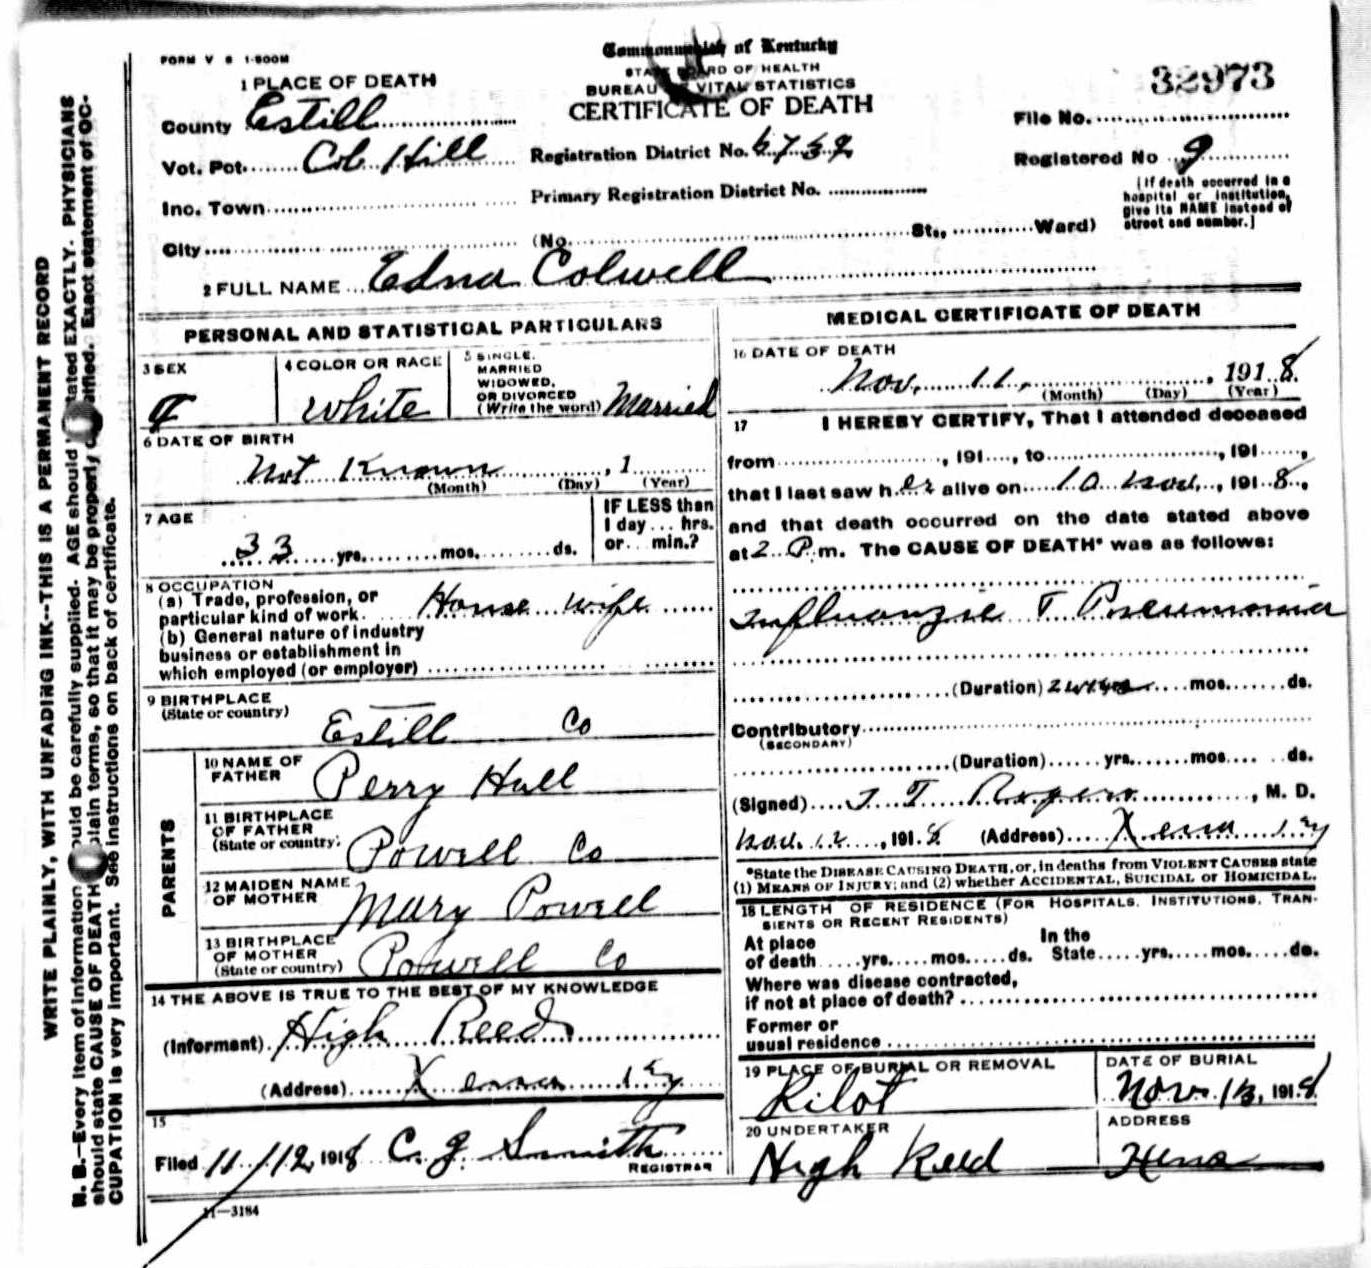 FORM V S 1-500M
Commonwealth of Kentucky
STATE BOARD OF HEALTH
BUREAU OF VITAL STATISTICS
CERTIFICATE OF DEATH
32973
File No.
Registered No 9
(If death occurred in a hospital or institution, give its NAME instead of street and number.]
1 PLACE OF DEATH
County Estill
Vot. Pct. Cob Hill
Registration District No. 6739
Inc. Town
Primary Registration District No.
City (No. St., Ward)
2 FULL NAME Edna Colwell
PERSONAL AND STATISTICAL PARTICULARS
3 SEX
4 COLOR OR RACE White
5 SINGLE, MARRIED WIDOWED, OR DIVORCED (Write the word) Married
6 DATE OF BIRTH
Not Known , 1
(Month) (Day) (Year)
7 AGE
33 yrs. mos. ds.
IF LESS than 1 day ... hrs. or ... min.?
8 OCCUPATION
(a) Trade, profession, or particular kind of work. House wife
(b) General nature of industry business or establishment in which employed (or employer)
9 BIRTHPLACE (State or country)
Estill Co
PARENTS
10 NAME OF FATHER Perry Hall
11 BIRTHPLACE OF FATHER (State or country) Powell Co
12 MAIDEN NAME OF MOTHER Mary Powell
13 BIRTHPLACE OF MOTHER (State or country) Powell Co
14 THE ABOVE IS TRUE TO THE BEST OF MY KNOWLEDGE
(Informant) High Reed
(Address) Xena Ky
15
Filed 11/12 1918 C. J. Smith
REGISTRAR
11—3184
MEDICAL CERTIFICATE OF DEATH
16 DATE OF DEATH
Nov. 11, 1918
(Month) (Day) (Year)
17 I HEREBY CERTIFY, That I attended deceased
from , 191 , to , 191 ,
that I last saw her alive on 10 Nov. , 1918,
and that death occurred on the date stated above
at 2 P.m. The CAUSE OF DEATH* was as follows:
Influanzie Pneumonia
(Duration) mos. ds.
Contributory
(SECONDARY)
(Duration) yrs. mos. ds.
(Signed) Rogers , M. D.
Nov. 12 , 1918 (Address) Xena Ky
*State the DISEASE CAUSING DEATH, or, in deaths from VIOLENT CAUSES state
(1) MEANS OF INJURY; and (2) whether ACCIDENTAL, SUICIDAL or HOMICIDAL.
18 LENGTH OF RESIDENCE (FOR HOSPITALS, INSTITUTIONS, TRANSIENTS OR RECENT RESIDENTS)
At place of death yrs. mos. ds. In the State yrs. mos. ds.
Where was disease contracted, if not at place of death?
Former or usual residence
19 PLACE OF BURIAL OR REMOVAL
Kilot
DATE OF BURIAL
Nov. 13, 1918
20 UNDERTAKER
High Reed
ADDRESS
WRITE PLAINLY, WITH UNFADING INK--THIS IS A PERMANENT RECORD
N. B.—Every item of information should be carefully supplied. AGE should be stated EXACTLY. PHYSICIANS
should state CAUSE OF DEATH in plain terms, so that it may be properly classified. Exact statement of OCCUPATION is very important. See instructions on back of certificate.